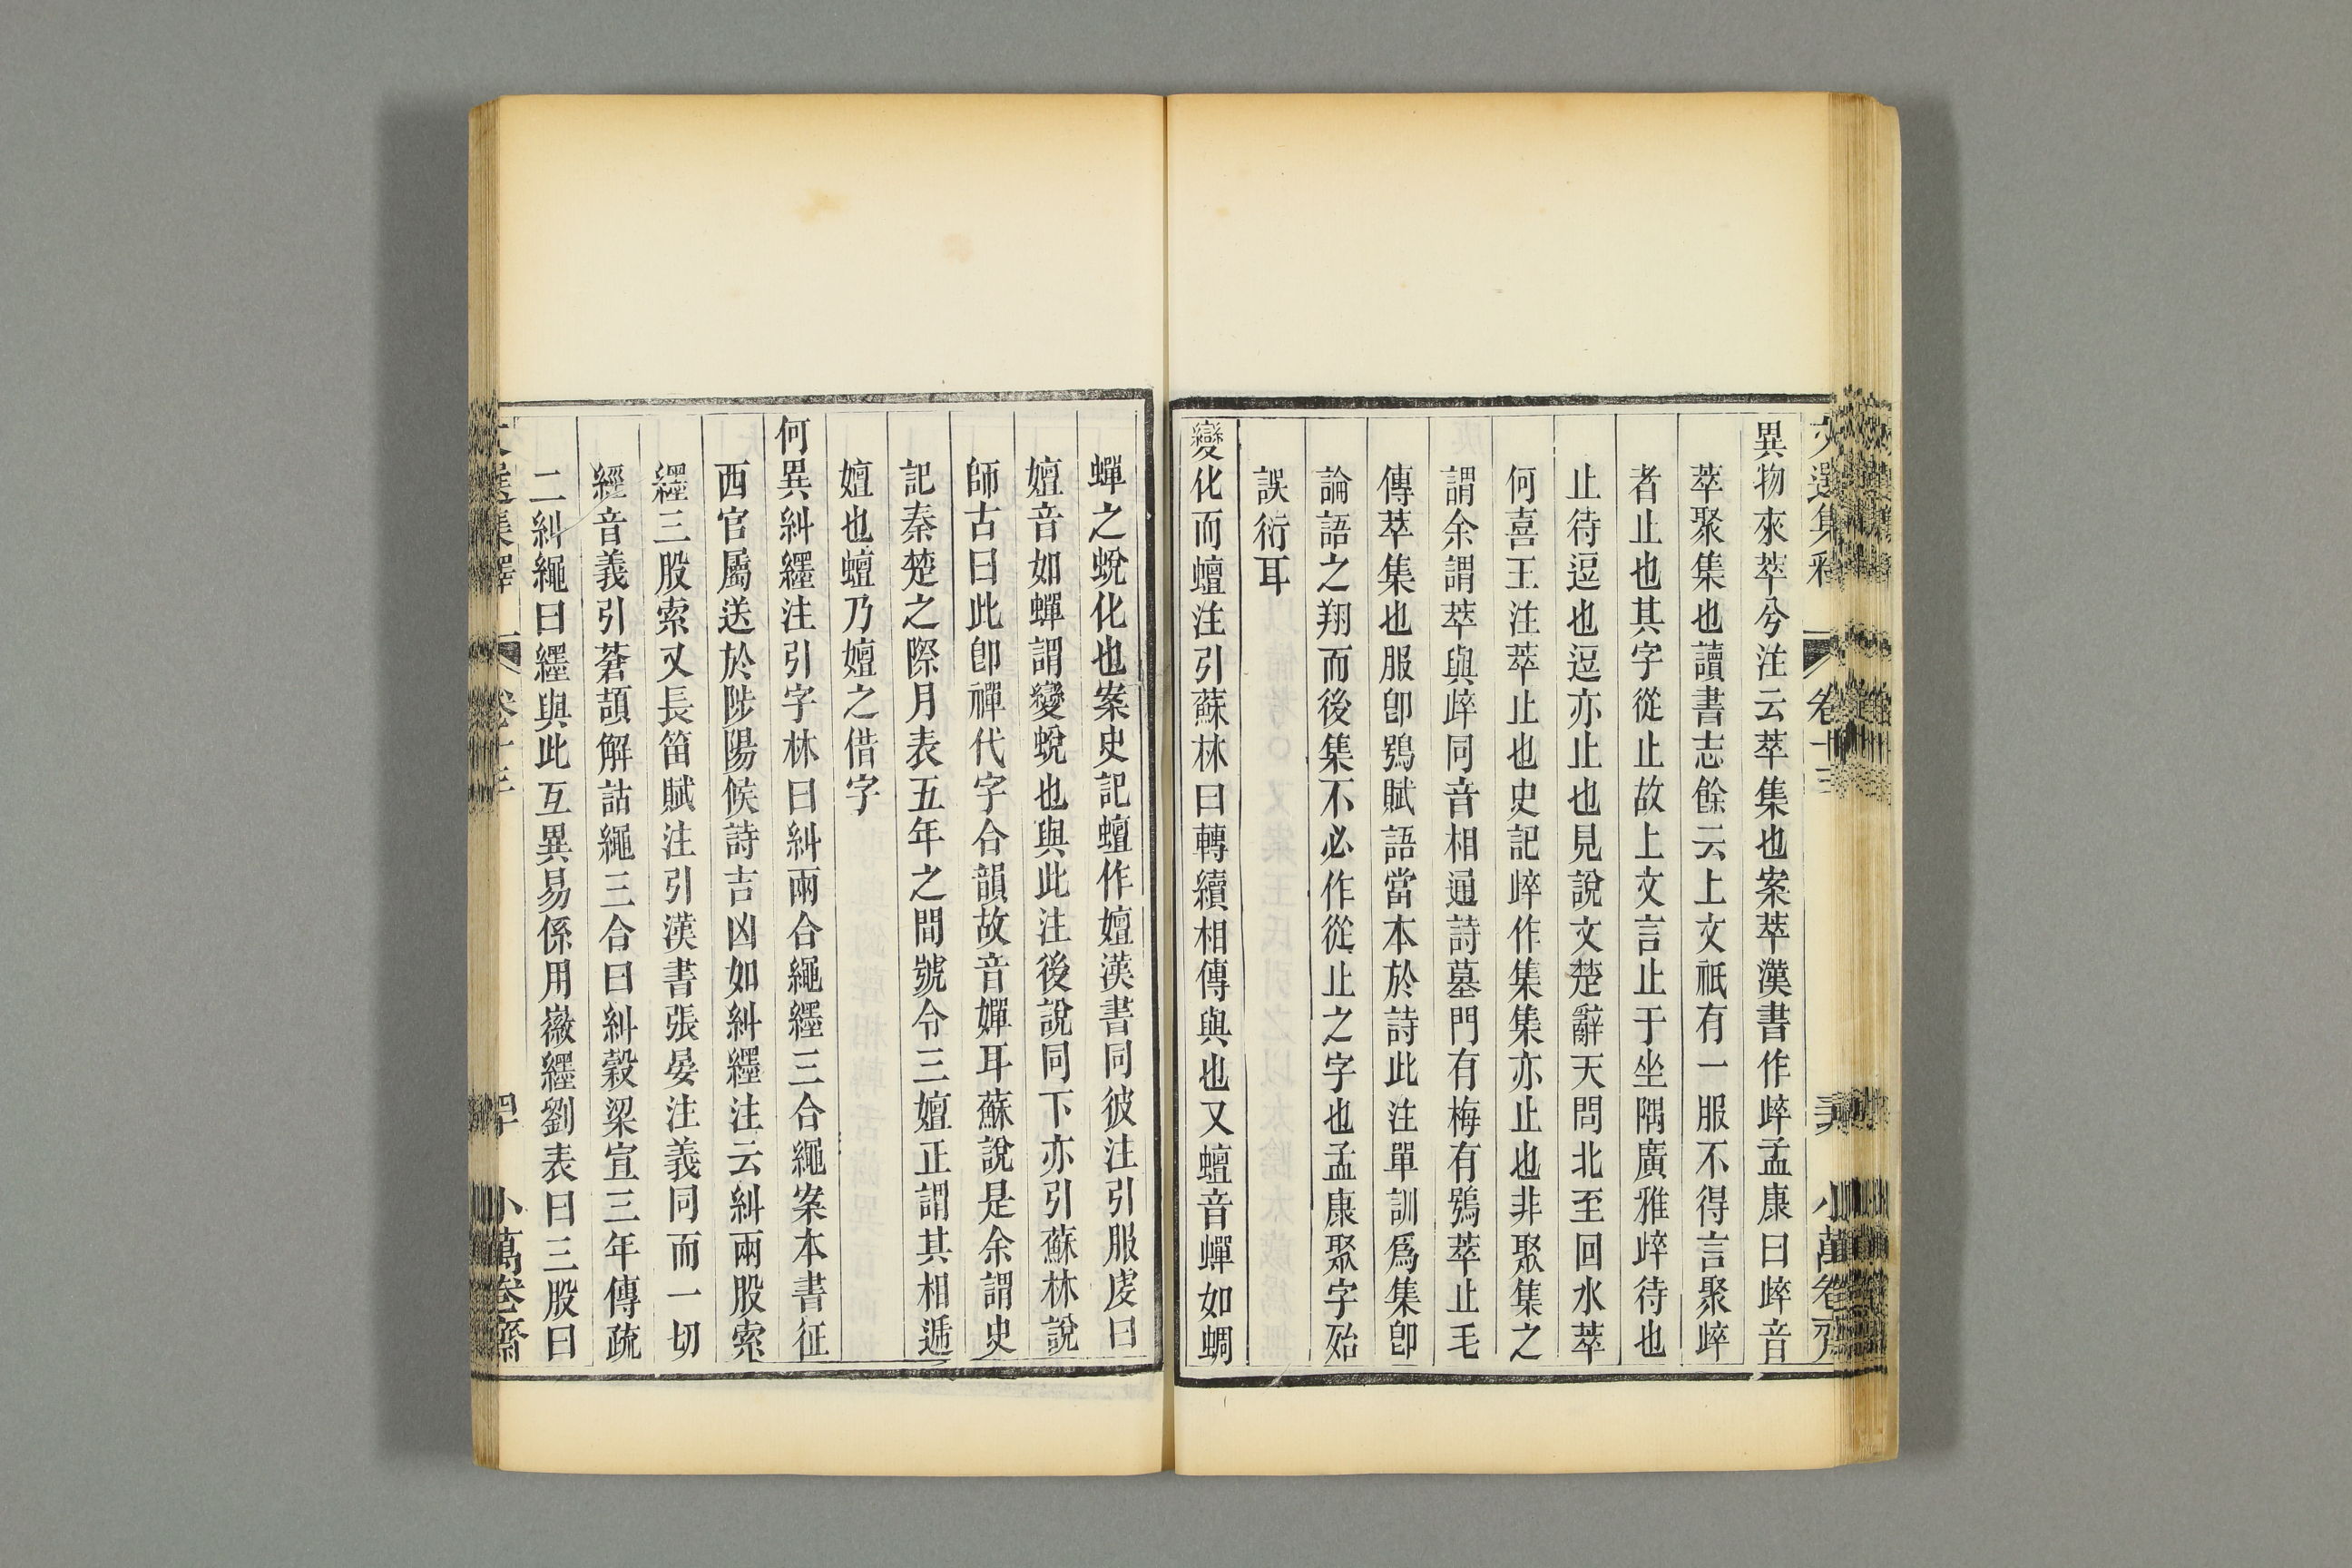 異物來萃兮注云萃集也案萃漢書作崪孟康曰崪音
萃聚集也讀書志餘云上文祇有一服不得言聚崪
者止也其字從止故上文言止于坐隅廣雅崪待也
止待逗也逗亦止也見說文楚辭天問北至回水萃
何喜王注萃止也史記崪作集集亦止也非聚集之
謂余謂萃與崪同音相通詩墓門有梅有鴞萃止毛
傳萃集也服卽鴞賦語當本於詩此注單訓爲集卽
論語之翔而後集不必作從止之字也孟康聚字殆
誤衍耳
變化而蟺注引蘇林曰轉續相傳與也又蟺音蟬如蜩
蟬之蛻化也案史記蟺作嬗漢書同彼注引服虔曰
嬗音如蟬謂變蛻也與此注後說同下亦引蘇林說
師古曰此卽禪代字合韻故音嬋耳蘇說是余謂史
記秦楚之際月表五年之間號令三嬗正謂其相遞
嬗也蟺乃嬗之借字
何異糾纆注引字林曰糾兩合繩纆三合繩案本書征
西官屬送於陟陽候詩吉凶如糾纆注云糾兩股索
纆三股索又長笛賦注引漢書張晏注義同而一切
經音義引蒼頡解詁繩三合曰糾穀梁宣三年傳疏
二糾繩曰纆與此互異易係用徽纆劉表曰三股曰
文選集釋 卷十三 四十 小萬卷齋